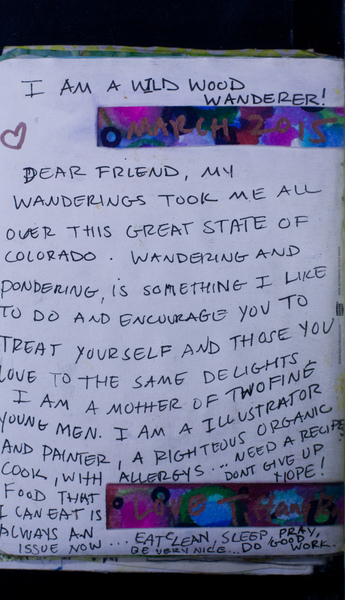 I AM A WILD WOOD
WANDERER!
MARCH 2015
DEAR FRIEND, MY
WANDERINGS TOOK ME ALL
OVER THIS GREAT STATE OF
COLORADO. WANDERING AND
PONDERING, IS SOMETHING I LIKE
TO DO AND ENCOURAGE YOU TO
TREAT YOURSELF AND THOSE YOU
LOVE TO THE SAME DELIGHTS.
I AM A MOTHER OF TWO FINE
YOUNG MEN. I AM A ILLUSTRATOR
AND PAINTER, A RIGHTEOUS ORGANIC
COOK, WITH ALLERGYS... NEED A RECIPE?
DONT GIVE UP
HOPE!
FOOD THAT
I CAN EAT IS
ALWAYS AN
ISSUE NOW... EAT CLEAN, SLEEP, PRAY,
BE VERY NICE... DO GOOD WORK.
LOVE